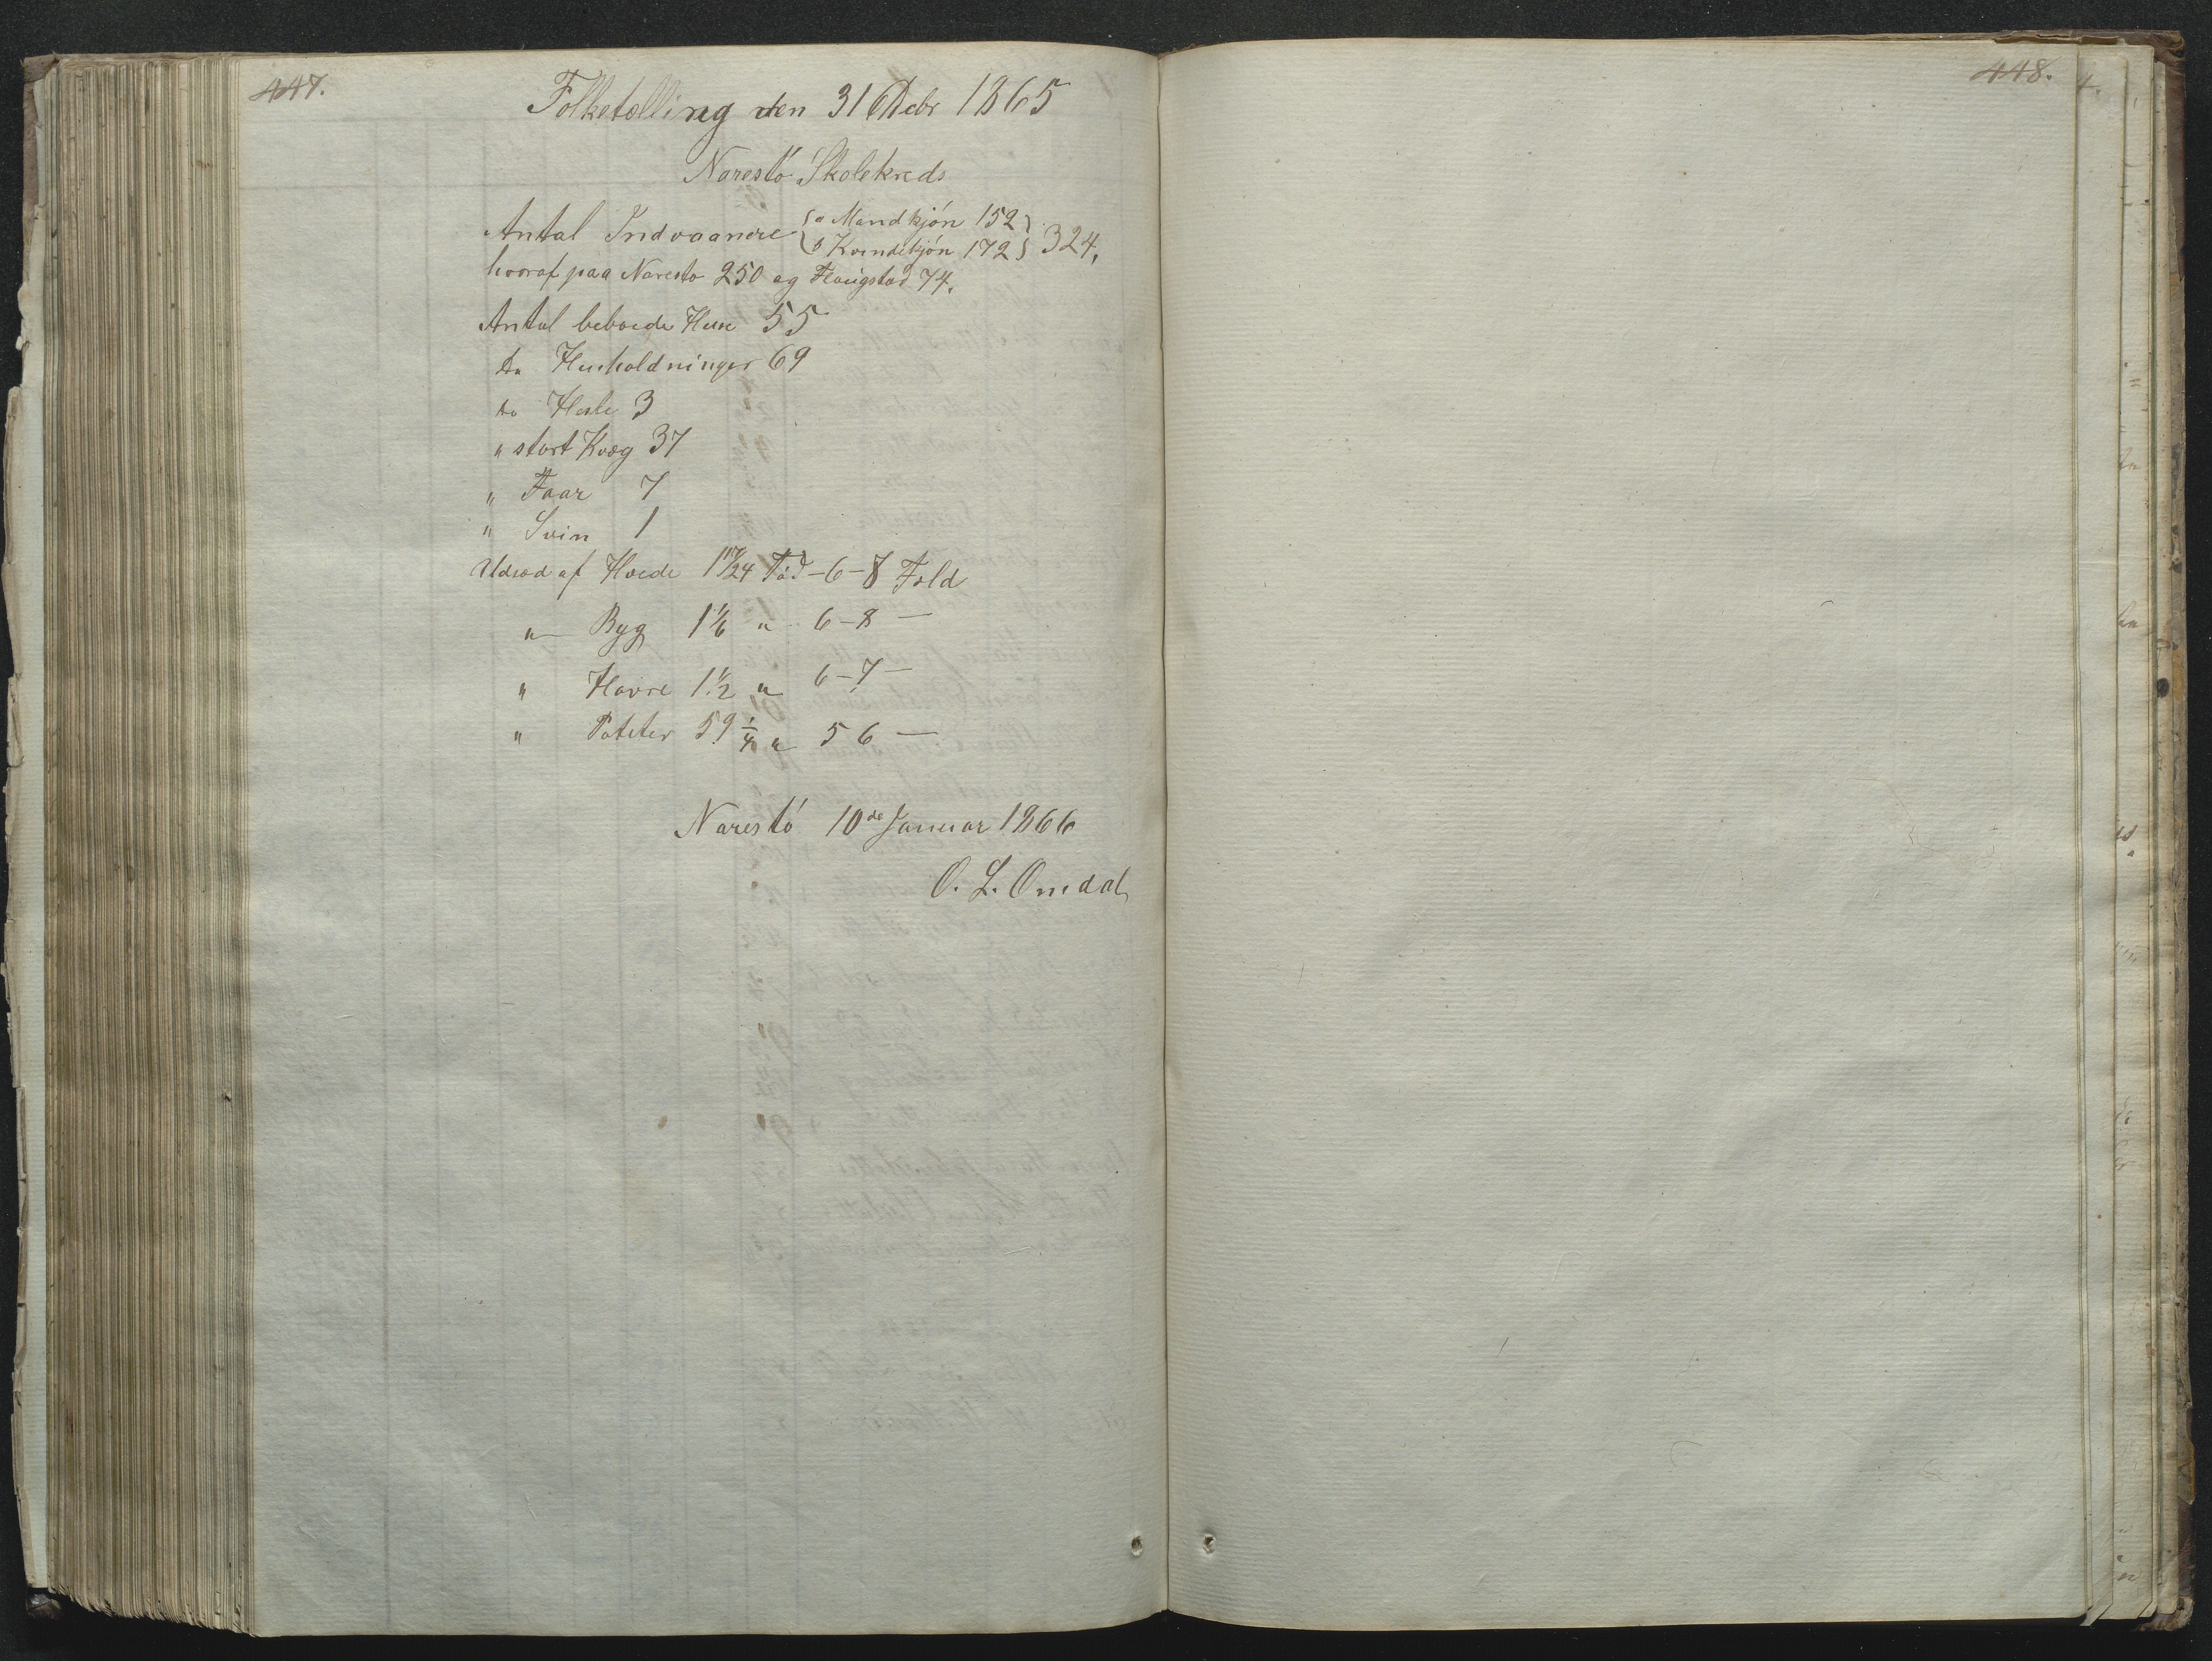 447.
Folketælling den 31 Decbr 1865
Narestö Skolekreds
Antal Indvaanere { a Mandkjön 152 } 324.
{ b Kvindekjön 172 }
hvoraf paa Narestö 250 og Flangstad 74.
Antal beboede Huse 55
do Husholdninger 69
do Heste 3
" stort Kvæg 37
" Faar 7
" Svin 1
Udsæd af Hvede 1 17/24 Töd - 6-8 Fold
" Byg 1 1/6 " 6-8 —
" Havre 1 1/2 " 6-7 —
" Poteter 59 1/4 " 5 6 —
Narestö 10de Januar 1866
O. L. Omdal
448.